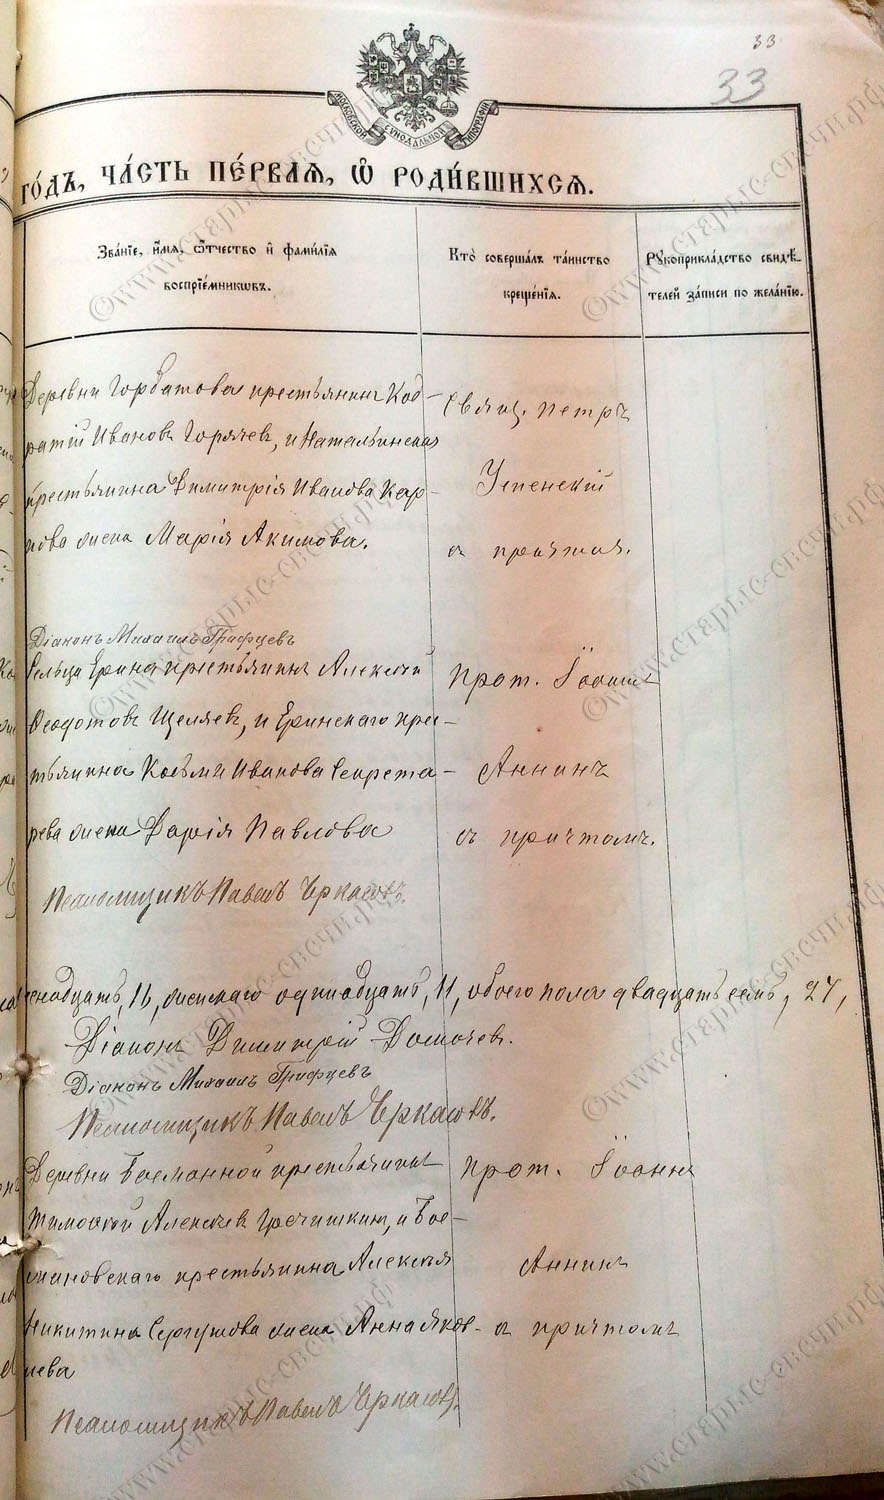 33
33
МОСКОВСКОЙ СѴНОДАЛЬНОЙ ТИПОГРАФІИ
го́дъ, ча́сть пе́рвая, ѡ҆ роди́вшихся.
Зва́нїе, и҆́мя, ѻ҆́тчество и҆ фами́лїя
воспрїе́мникѡвъ.
Кто̀ соверша́лъ та́инство
креще́нїя.
Рꙋкоприкла́дство свидѣ́-
телей за́писи по жела́нїю.
Деревни Горбатова крестьянинъ Код-
ратій Ивановъ Горячевъ, и Натальинскаго
крестьянина Димитрія Иванова Кар-
пова жена Марія Акимова.
Свящ. Петръ
Успенскій
съ причтомъ.
Діаконъ Михаилъ Грифцевъ
Сельца Ерина крестьянинъ Алексѣй
Ѳедотовъ Щеляевъ, и Еринскаго крес-
тьянина Козьмы Иванова Секрета-
рева жена Дарія Павлова
Прот. Іоаннъ
Аннинъ
съ причтомъ.
Псаломщикъ Павелъ Черкасовъ.
надцать, 16, женскаго одинадцать, 11, обоего пола двадцать семь, 27,
Діаконъ Димитрій Домачевъ.
Діаконъ Михаилъ Грифцевъ
Псаломщикъ Павелъ Черкасовъ.
Деревни Босманной крестьянинъ
Тимоѳей Алексѣевъ Гречишкинъ, и Бос-
мановскаго крестьянина Алексѣя
Никитина Сергунова жена Анна Яков-
лева
Прот. Іоаннъ
Аннинъ
съ причтомъ
Псаломщикъ Павелъ Черкасовъ.
©www.старые-свечи.рф